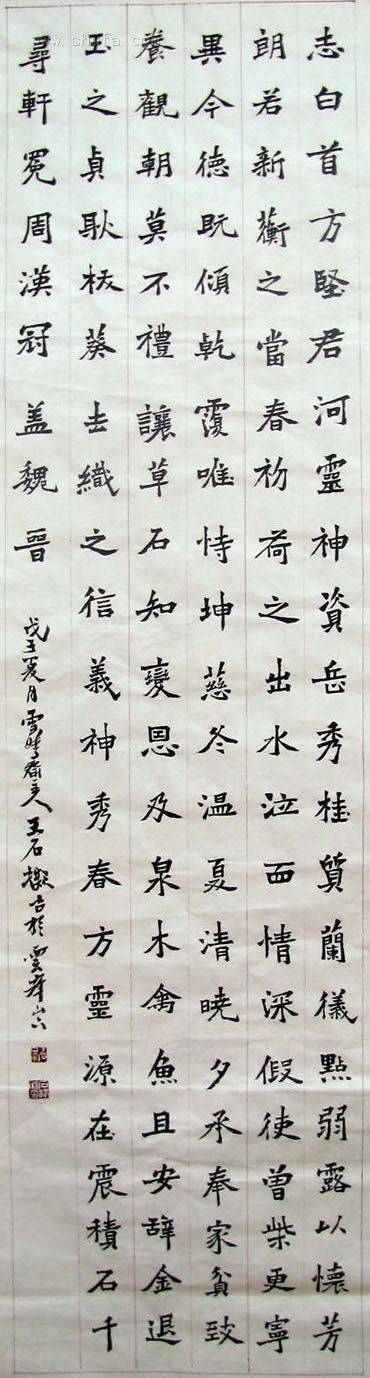 志白首方坚君河靈神資岳秀桂質蘭儀點弱露以懷芳
朗若新蘅之當春初荷之出水泣面情深假使曾柴更寧
異今德既傾乾覆唯恃坤慈冬温夏清曉夕承奉家貧致
養觀朝莫不禮讓草石知變恩及泉木禽魚且安辭金退
玉之貞耿拔葵去織之信義神秀春方靈源在震積石千
尋軒冕周漢冠盖魏晋
戊子夏月雲峰齋主人王石擬古於雲峰